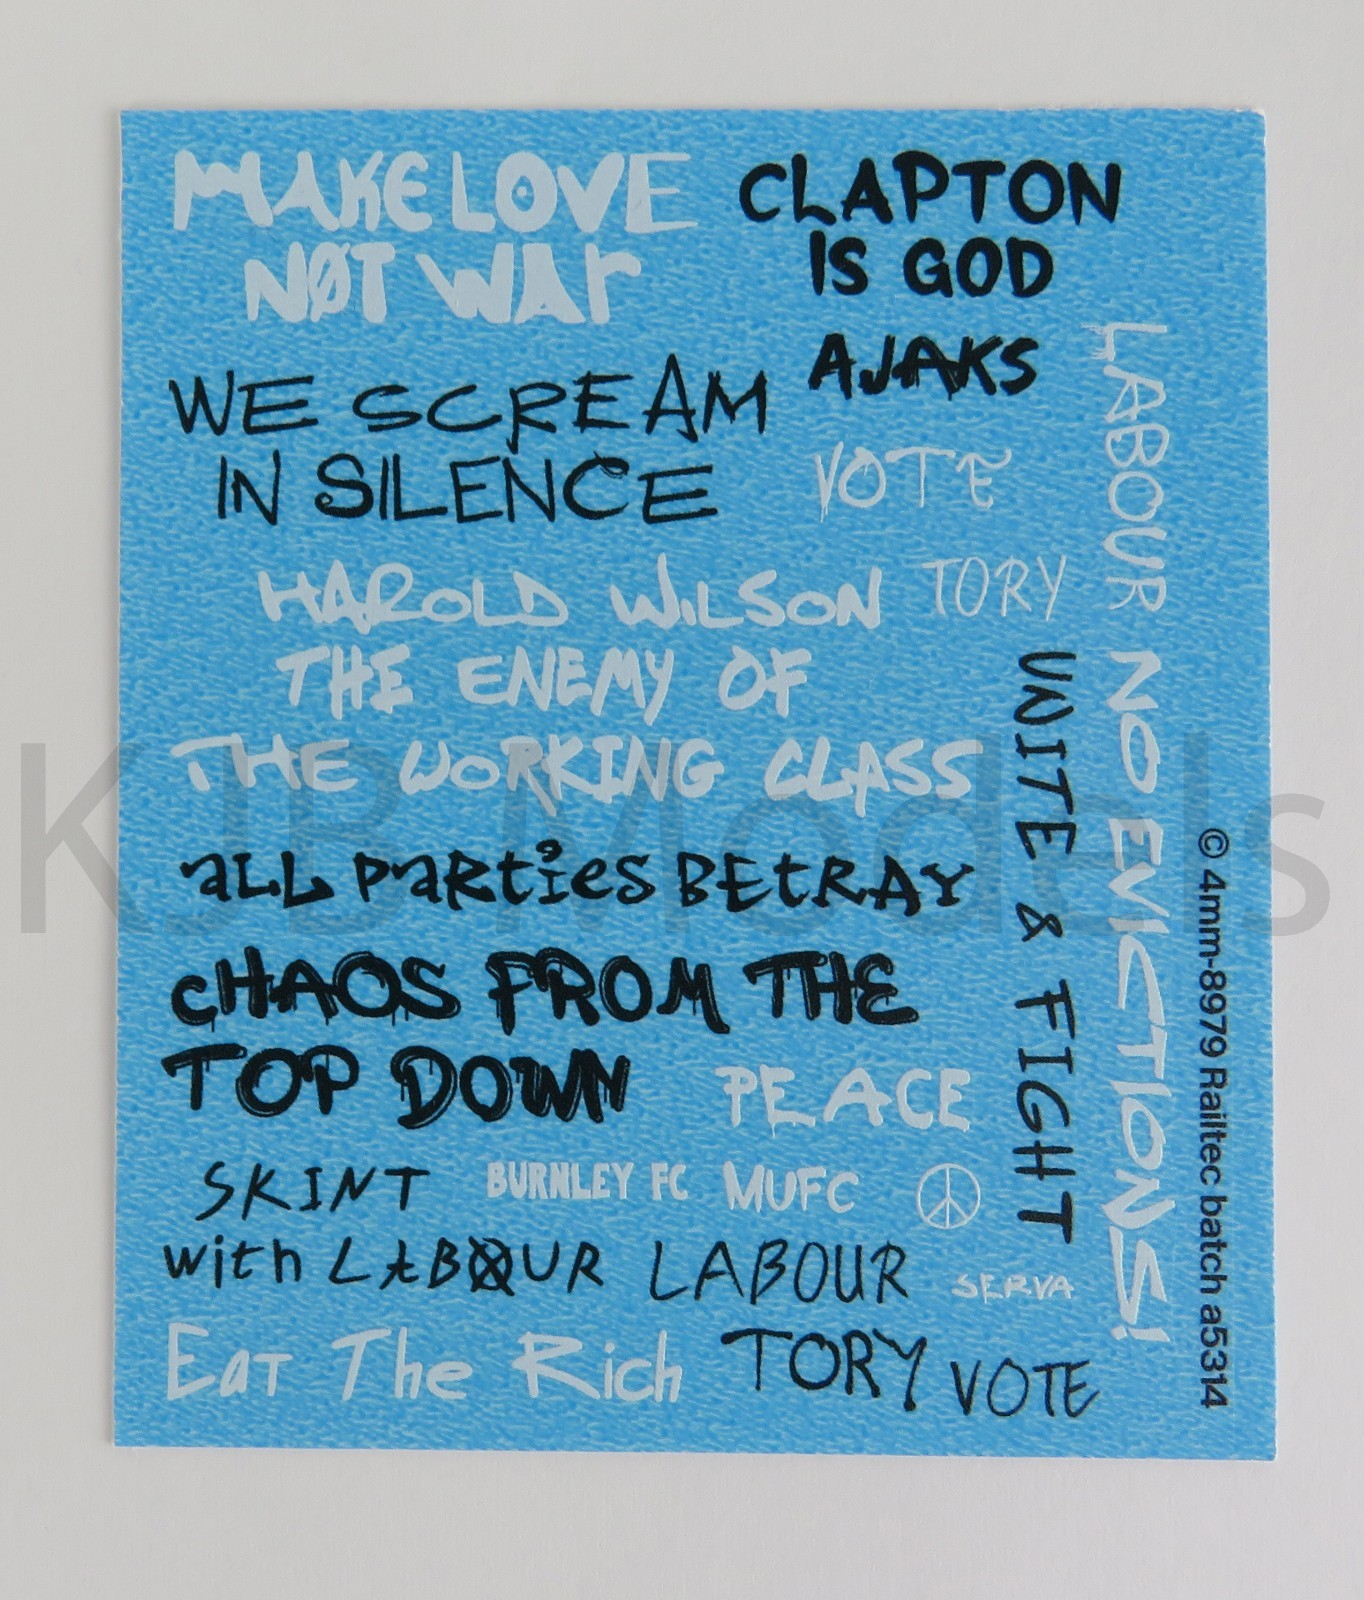 MAKE LOVE
NØT WAr
CLAPTON
IS GOD
AJAKS
WE SCREAM
IN SILENCE
VOTE
LABOUR
HAROLD WiLSON
THE ENEMY OF
THE WORKING CLASS
TORY
UNITE & FIGHT
NO EVICTIONS!
aLL PaRtiesBEtRAY
cHAOS FROM THE
TOP DOWN
PEACE
SKINT
BURNLEY FC
MUFC
with LABOUR
LABOUR
SERVA
Eat The Rich
TORY
VOTE
© 4mm-8979 Railtec batch a5314
KJB Models